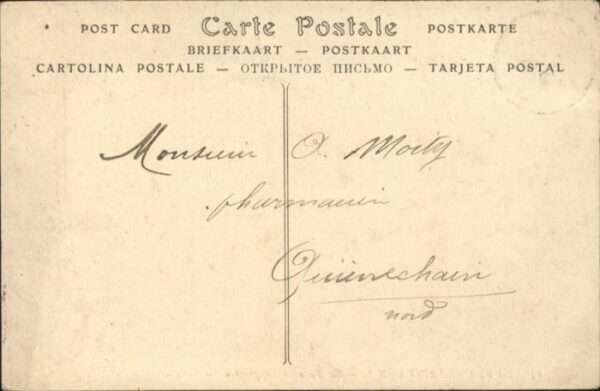 POST CARD Carte Postale POSTKARTE
BRIEFKAART — POSTKAART
CARTOLINA POSTALE — ОТКРЫТОЕ ПИСЬМО — TARJETA POSTAL
Monsieur
pharmacien
nord